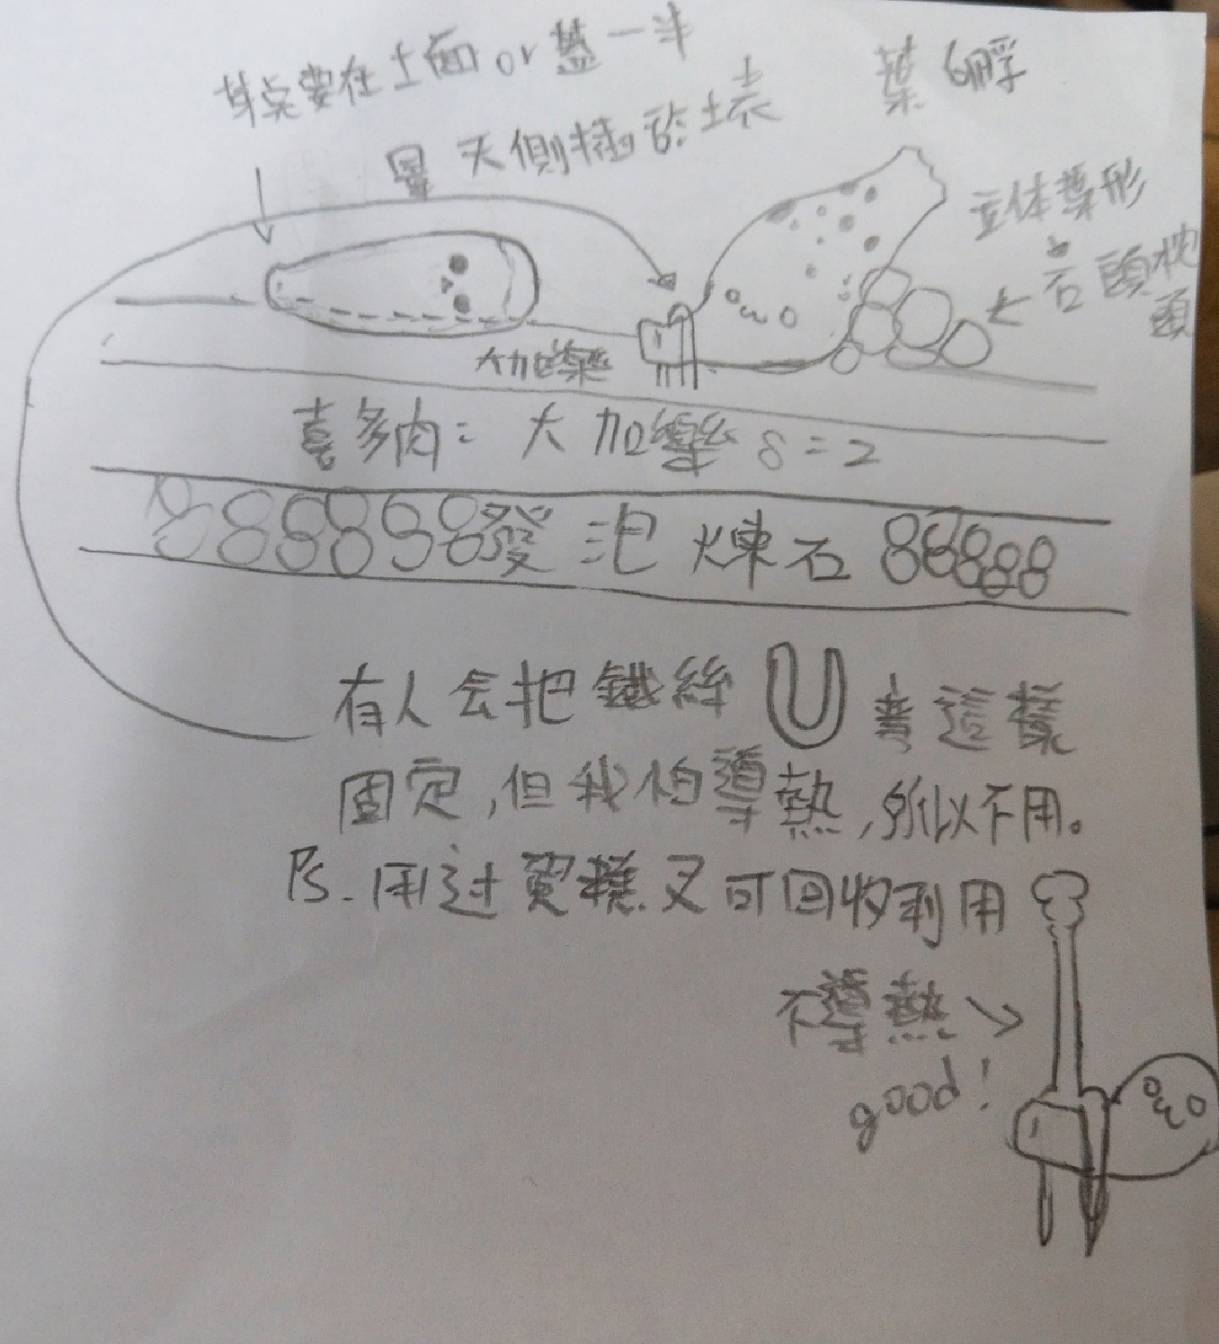 芽点要在土面 or 蓋一半
葉孵
量天側插於土表
立体葉形
石頭枕
頭
大加樂
喜多肉: 大加樂 8=2
發泡煉石
有人会把鐵絲 U 弯這樣
固定,但我怕導熱,所以不用。
Ps.用过質樸又可回收利用
不導熱
good!